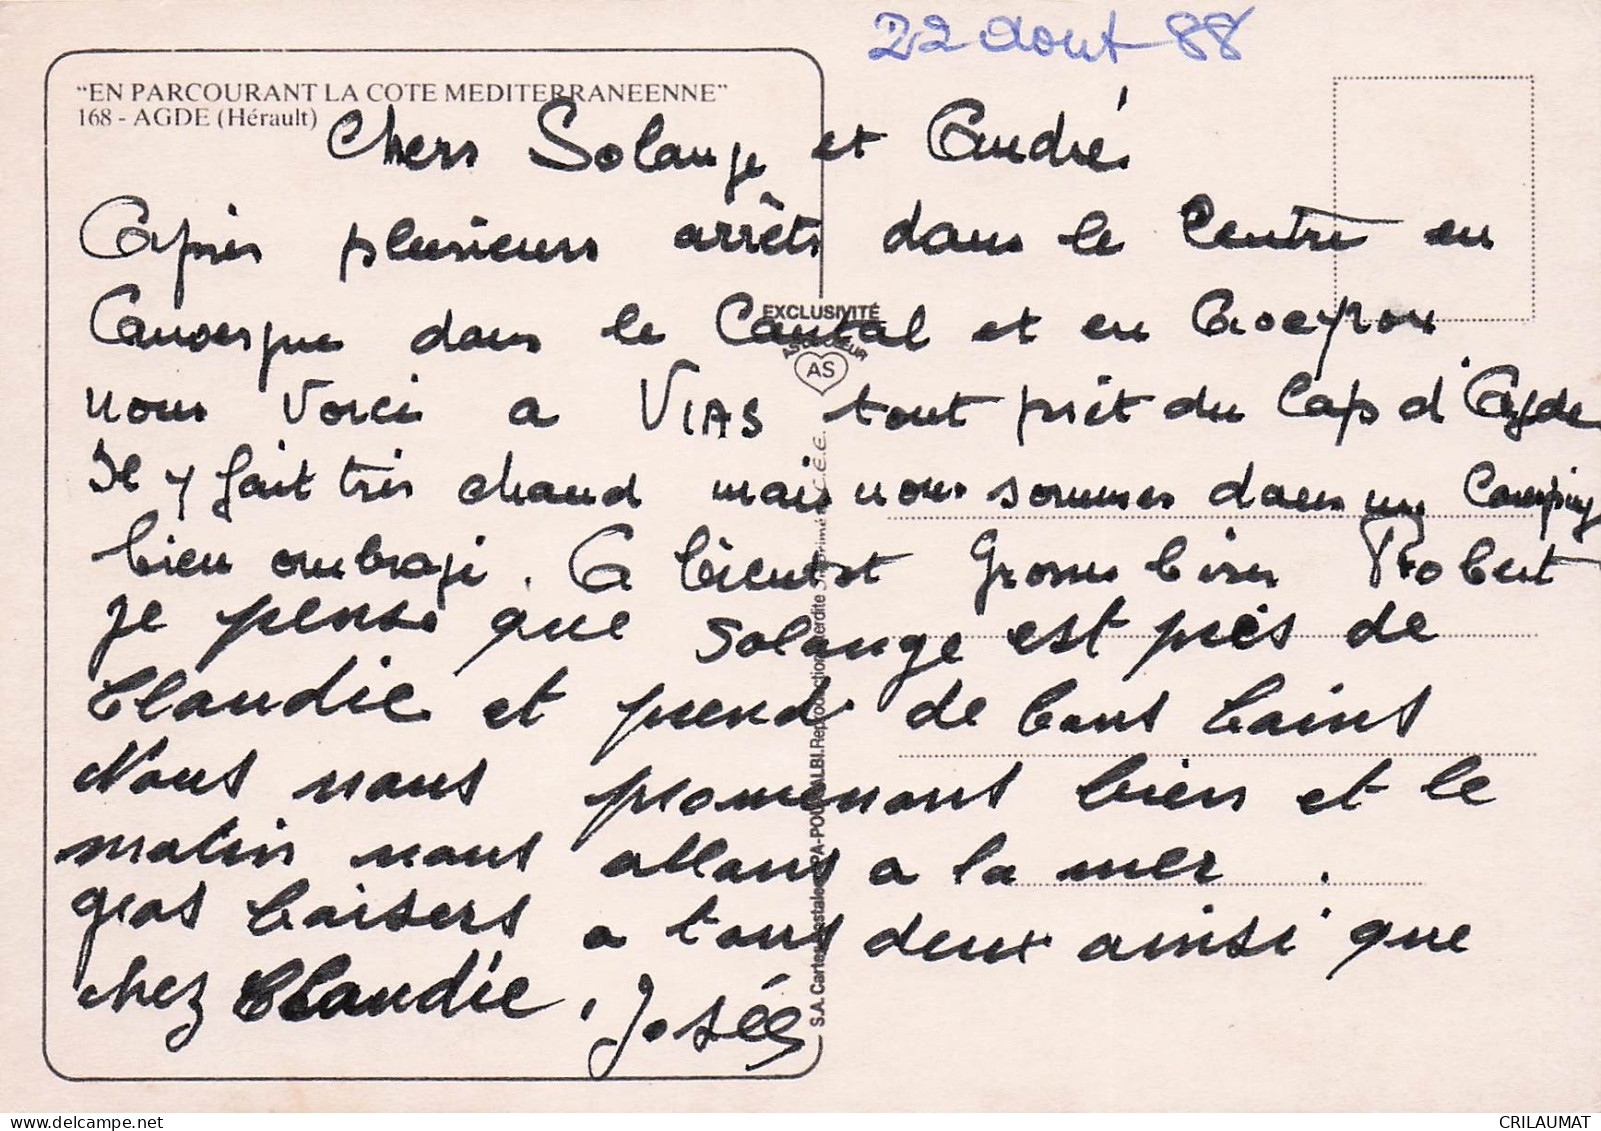 22 Aout 88
"EN PARCOURANT LA COTE MEDITERRANEENNE"
168 - AGDE (Hérault)
Chers Solange et André
Après plusieurs arrêts dans le Centre en
Auvergne dans le Cantal et en Aveyron
nous voici a VIAS tout prêt du Cap d'Agde
Il y fait très chaud mais nous sommes dans un Camping
bien ombragé. A bientot Grosses bises Robert
je pense que Solange est près de
Claudie et prend de bons bains
Nous nous promenons bien et le
matin nous allons a la mer.
gros baisers a tous deux ainsi que
chez Claudie. Josée
EXCLUSIVITÉ
AS DE COEUR
AS
S.A. Cartes Postales APA-POUX ALBI. Reproduction interdite Imprimé C.E.E.
CRILAUMAT